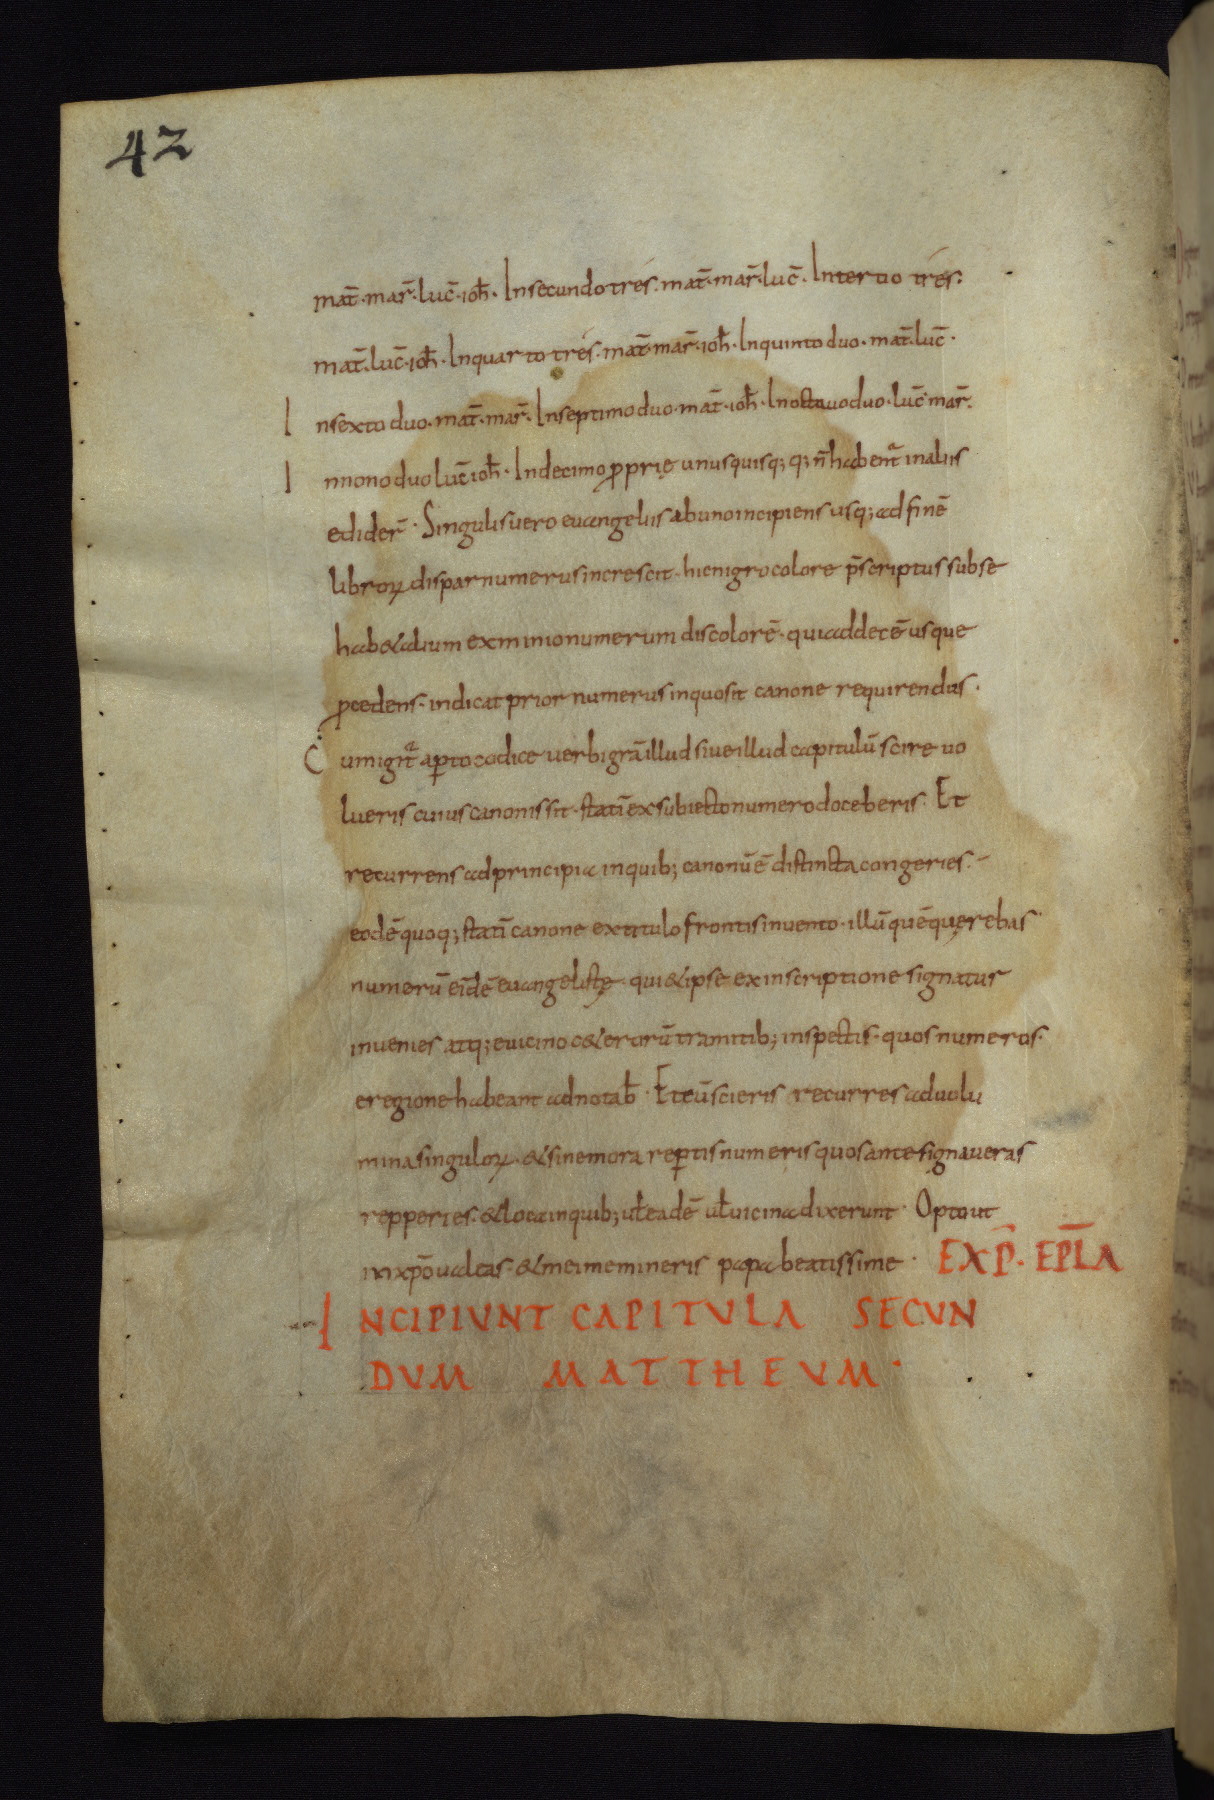 42
mat̄·mar̄·luc̄·ioh̄· In secundo tres· mat̄·mar̄·luc̄· In tertio tres·
mat̄·luc̄·ioh̄· In quarto tres· mat̄·mar̄·ioh̄· In quinto duo· mat̄·luc̄·
In sexto duo· mat̄·mar̄· In septimo duo· mat̄·ioh̄· In octavo duo· luc̄ mar̄·
In nono duo luc̄ ioh̄· In decimo ꝓprię unusquisq; q; n̄ habent᷑ in aliis
edider̄· Singulis vero evangeliis ab uno incipiens usq; ad finē
libroꝝ dispar numerus increscit· hic nigro colore p̄scriptus sub se
hab& alium ex minio numerum discolorē· qui ad decē usque
ꝓcedens· indicat prior numerus in quo sit canone requirendus·
Cum igit᷑ aꝑto codice verbi grā illud sive illud capitulū scire vo
lueris cuius canonis sit· statī ex subiecto numero doceberis· Et
recurrens ad principia in quib; canonū ē distincta congeries·
eodē quoq; statī canone ex titulo frontis invento· illū quē querebas
numerū eīdē evangelistę· qui & ipse ex inscriptione signatus
invenies atq; e vicino c&erorū tramitib; inspectis· quos numeros·
e regione habeant adnotab̄· Et cū scieris recurres ad volu
mina singuloꝝ· & sine mora reꝑtis numeris quos ante signaveras
repperies· & loca in quib; ul̄ eadē ul̄ vicina dixerunt· Opto ut
in xp̄o valeas· & mei memineris papa beatissime· EXP̄· EPL̄A
INCIPIUNT CAPITULA SECUN
DUM MATTHEUM·